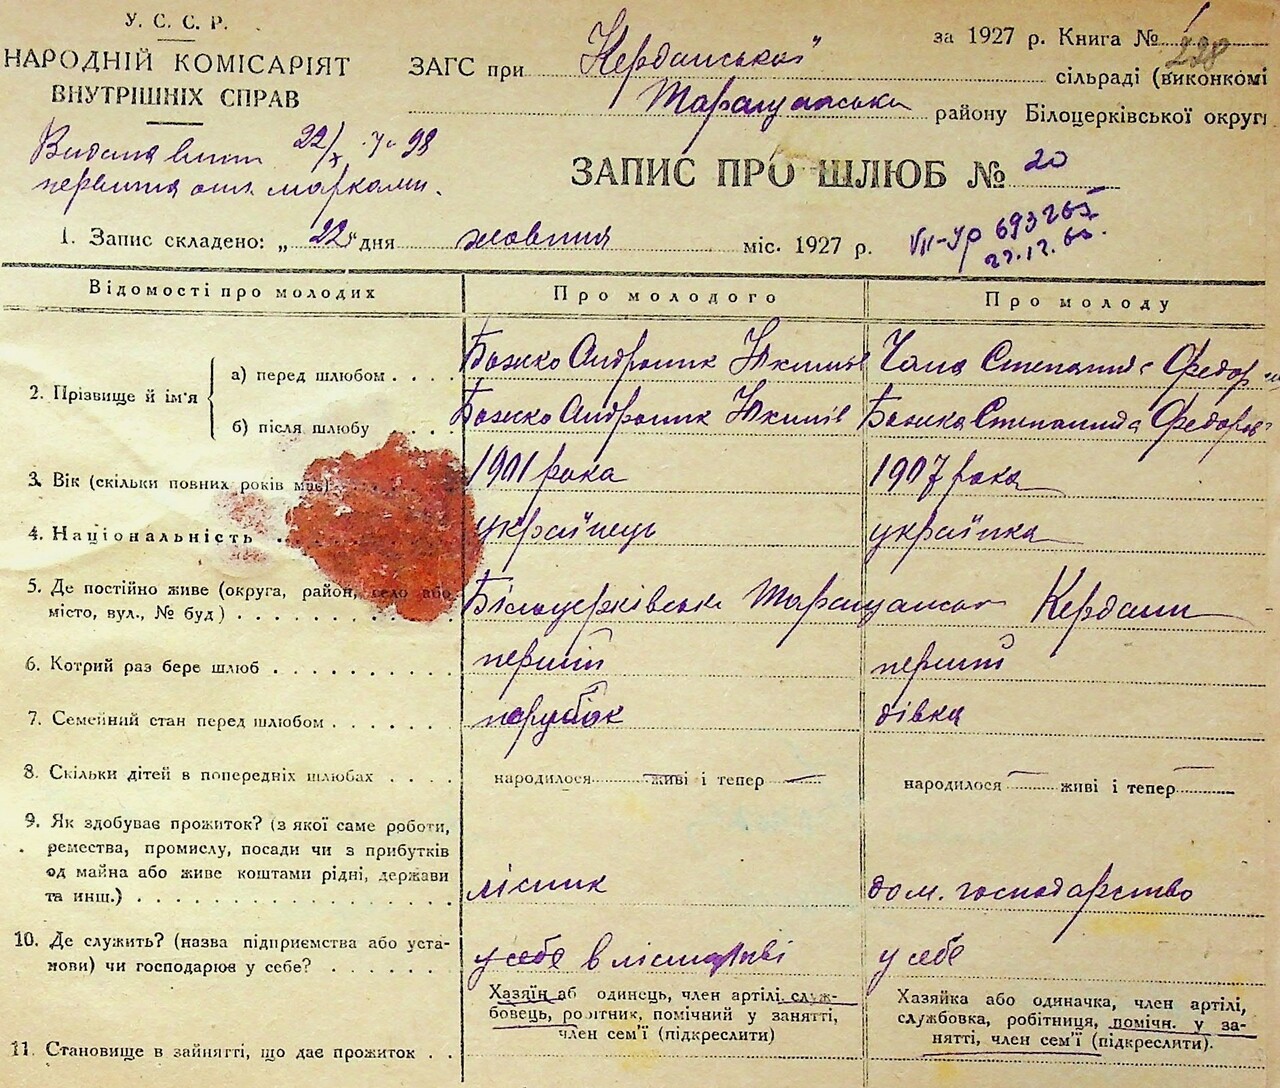 У. С. С. Р.
НАРОДНІЙ КОМІСАРІЯТ
ВНУТРІШНІХ СПРАВ
за 1927 р. Книга №
228
ЗАГС при Керданської сільраді (виконкомі
Таращанська району Білоцерківської округи
Видана 22/X
марками.
ЗАПИС ПРО ШЛЮБ № 20
1. Запис складено: „22“ дня жовтня міс. 1927 р.
VII-Ур 693265
27.12.65.
Відомості про молодих Про молодого Про молоду
2. Прізвище й ім'я
а) перед шлюбом . . . . Божко Андроник Якимів Чала Степанида Федор
б) після шлюбу . . . Божко Андроник Якимів Божко Степанида Федоров
3. Вік (скільки повних років має) 1901 рока 1907 рока
4. Національність . . українець українка
5. Де постійно живе (округа, район, село або
місто, вул., № буд) . . . . . . . . . . . Білоцерківська Таращанськ Кердани
6. Котрий раз бере шлюб . . . . . . . . . перший перший
7. Семейний стан перед шлюбом . . . . . . парубок дівка
8. Скільки дітей в попередніх шлюбах . . . . народилося — живі і тепер — народилося — живі і тепер
9. Як здобуває прожиток? (з якої саме роботи,
ремества, промислу, посади чи з прибутків
од майна або живе коштами рідні, держави
та инш.) . . . . . . . . . . . . . . . . лісник дом. господарство
10. Де служить? (назва підприємства або уста-
нови) чи господарює у себе? . . . . . . у себе в у себе
Хазяїн аб одинець, член артілі, служ-
бовець, робітник, помічний у занятті,
член сем'ї (підкреслити)
Хазяйка або одиначка, член артілі,
службовка, робітниця, помічн. у за-
нятті, член сем'ї (підкреслити).
11. Становище в зайнятті, що дає прожиток . .